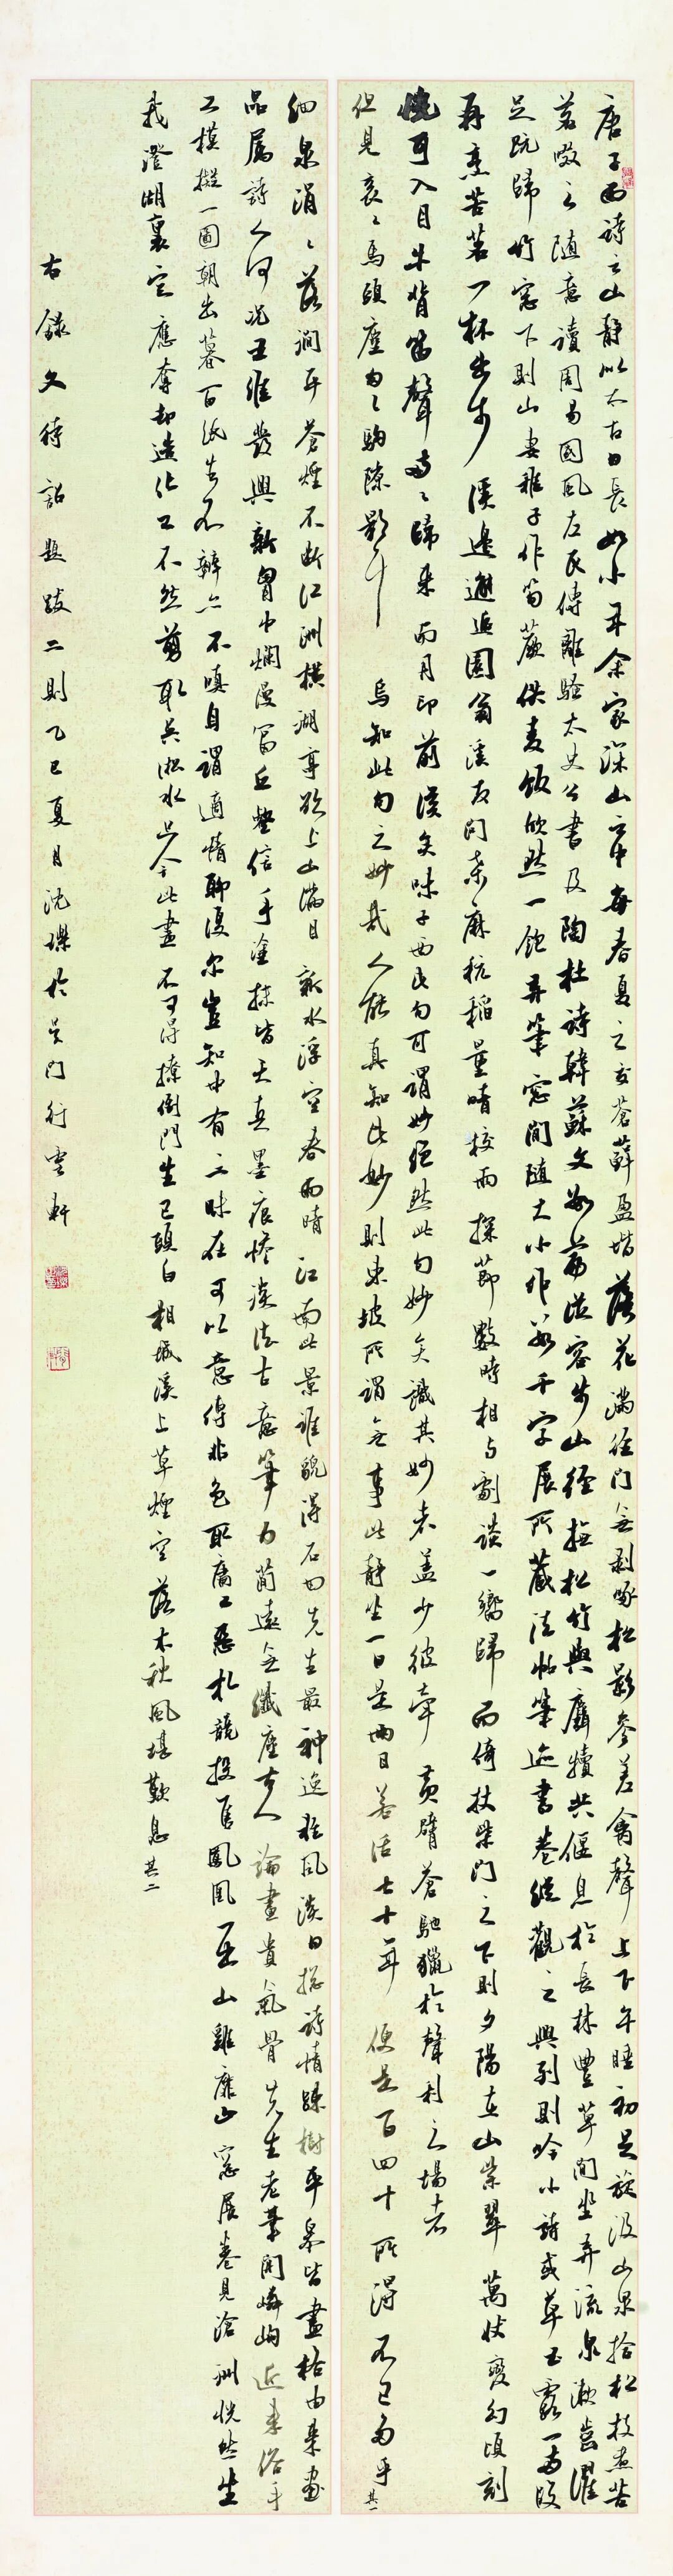 唐子西詩云山靜似太古日長如小年余家深山之中每春夏之交蒼蘚盈堦落花滿徑門無剝啄松影參差禽聲上下午睡初足旋汲山泉拾松枝煮苦
茗啜之隨意讀周易國風左氏傳離騷太史公書及陶杜詩韓蘇文數篇從容步山徑撫松竹與麛犢共偃息於長林豐草間坐弄流泉漱齒濯
足既歸竹窓下則山妻稚子作筍蕨供麦飯欣然一飽弄筆窓間隨大小作數十字展所藏法帖筆迹書卷縱觀之興到則吟小詩或草玉露一兩段
再烹苦茗一杯出步溪邊邂逅園翁溪友問桑麻秔稲量晴校雨探節數時相与劇談一嚮歸而倚杖柴門之下則夕陽在山紫翠萬狀變幻頃刻
怳可入目牛背笛聲兩〻歸来而月印前溪矣味子西此句可謂妙絕然此句妙矣識其妙者盖少彼牽黃臂蒼馳獵於聲利之場者
但見衮〻馬頭塵匆〻駒隙影耳烏知此句之妙哉人能真知此妙則東坡所謂無事此靜坐一日是兩日若活七十年便是百四十所得不已多乎其一
細泉涓〻落澗平蒼煙不斷江洲橫湖亭欲上山滿目新水浮空春雨晴江南此景誰貌得石田先生最神逸輕風淡日揔詩情疎樹平皋皆畫格由来畫
品屬詩人何况王維發興新胷中爛漫富丘壑信手塗抹皆天真墨痕惨淡法古意筆力蕳遠無纖塵古人論畫貴氣骨先生老筆開嶙峋近来俗手
工摸擬一圖朝出暮百紙先生不辯亦不嗔自謂適情聊復尔豈知中有三昧在可以意傳非色取庸工惡札競投售鳳凰一出山雞靡山窓展卷見滄洲恍然坐
我澄湖裏定應奪却造化工不然剪取吳淞水只今此畫不可得撩倒門生已頭白相城溪上草煙空落木秋風堪歎息其二
右錄文待詔題跋二則乙巳夏月沈璪於吳門行雲軒